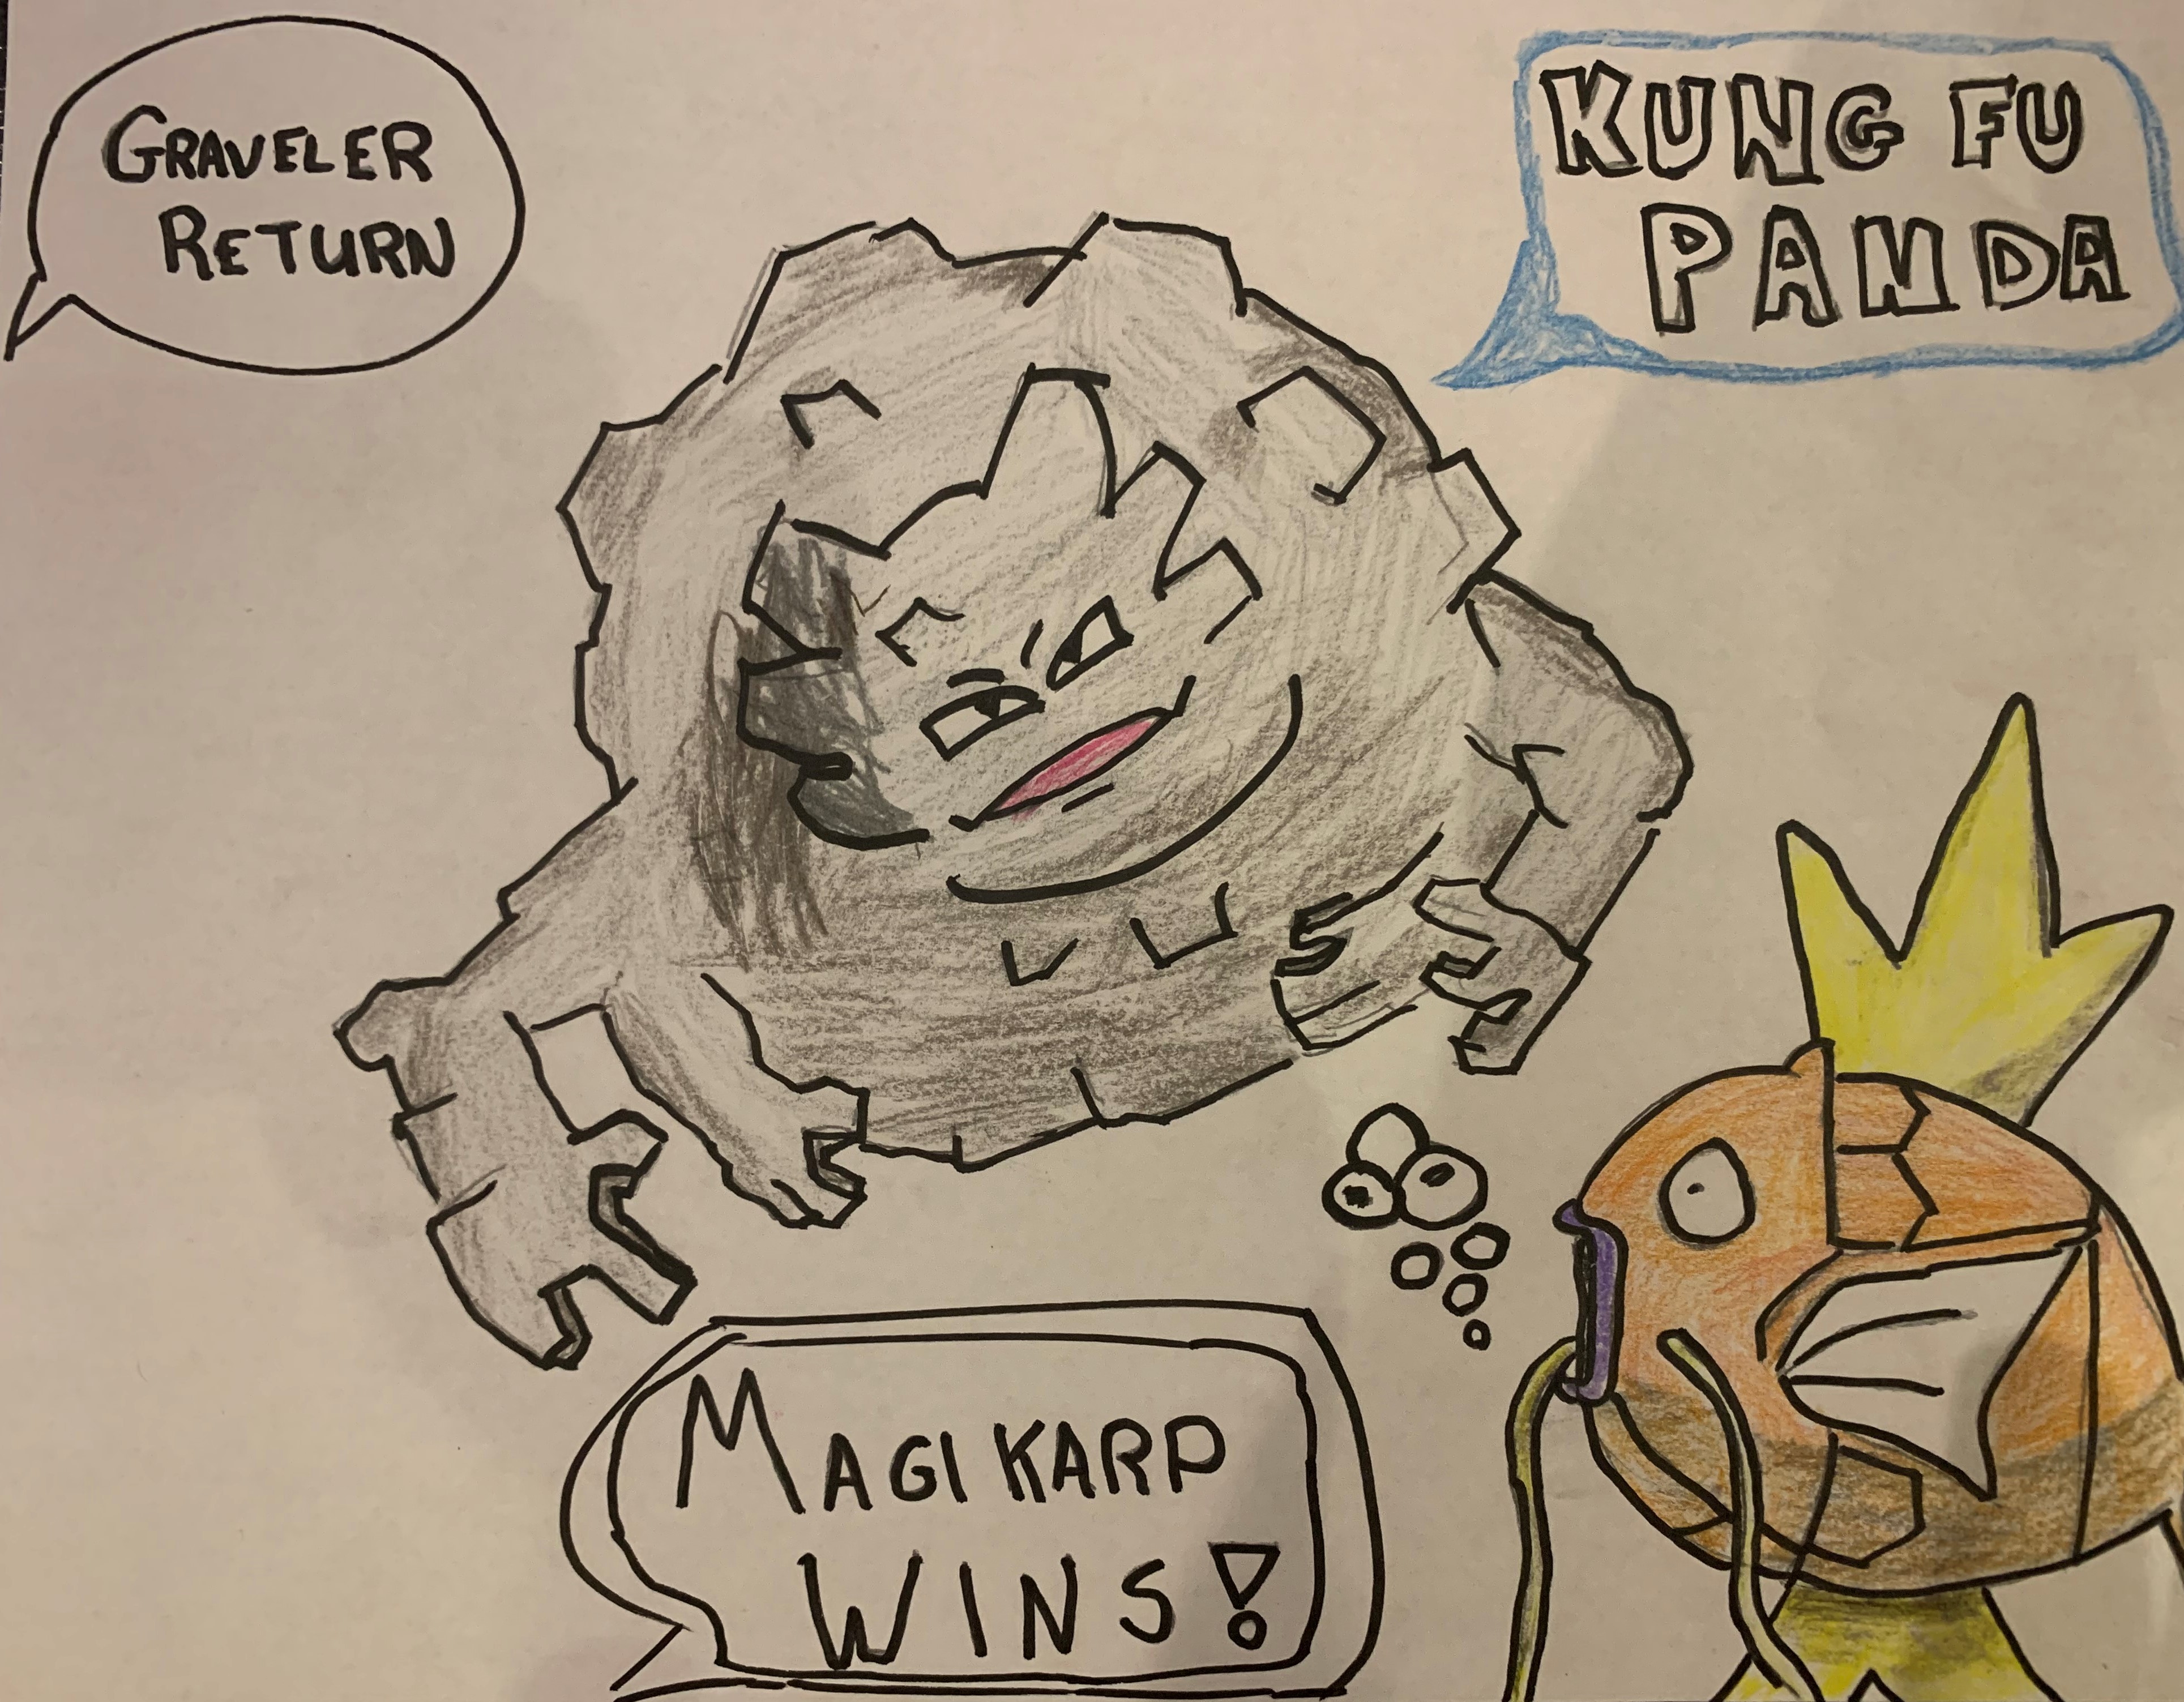 GRAVELER
RETURN
KUNG FU
PANDA
MAGIKARP
WINS!